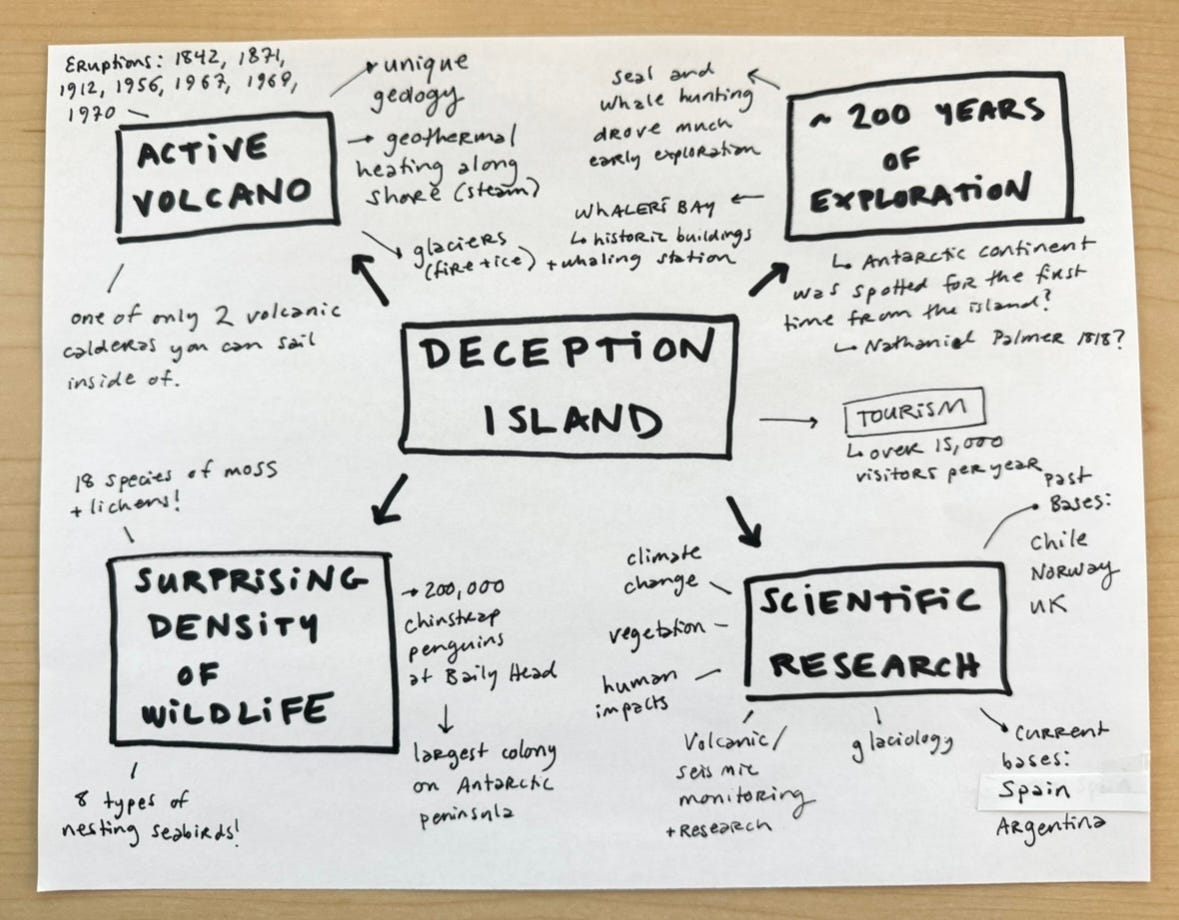 Eruptions: 1842, 1871,
1912, 1956, 1967, 1969,
1970
ACTIVE
VOLCANO
unique
geology
geothermal
heating along
shore (steam)
glaciers
(fire + ice)
one of only 2 volcanic
calderas you can sail
inside of.
~ 200 YEARS
OF
EXPLORATION
seal and
whale hunting
drove much
early exploration
WHALERS BAY
historic buildings
+ whaling station
Antarctic continent
was spotted for the first
time from the island?
Nathaniel Palmer 1818?
DECEPTION
ISLAND
TOURISM
over 15,000
visitors per year
18 species of moss
+ lichens!
SURPRISING
DENSITY
OF
WILDLIFE
200,000
chinstrap
penguins
at Baily Head
largest colony
on Antarctic
peninsula
8 types of
nesting seabirds!
SCIENTIFIC
RESEARCH
climate
change
vegetation
human
impacts
Volcanic/
seismic
monitoring
+ Research
glaciology
Past
Bases:
Chile
Norway
UK
Current
bases:
Spain
Argentina